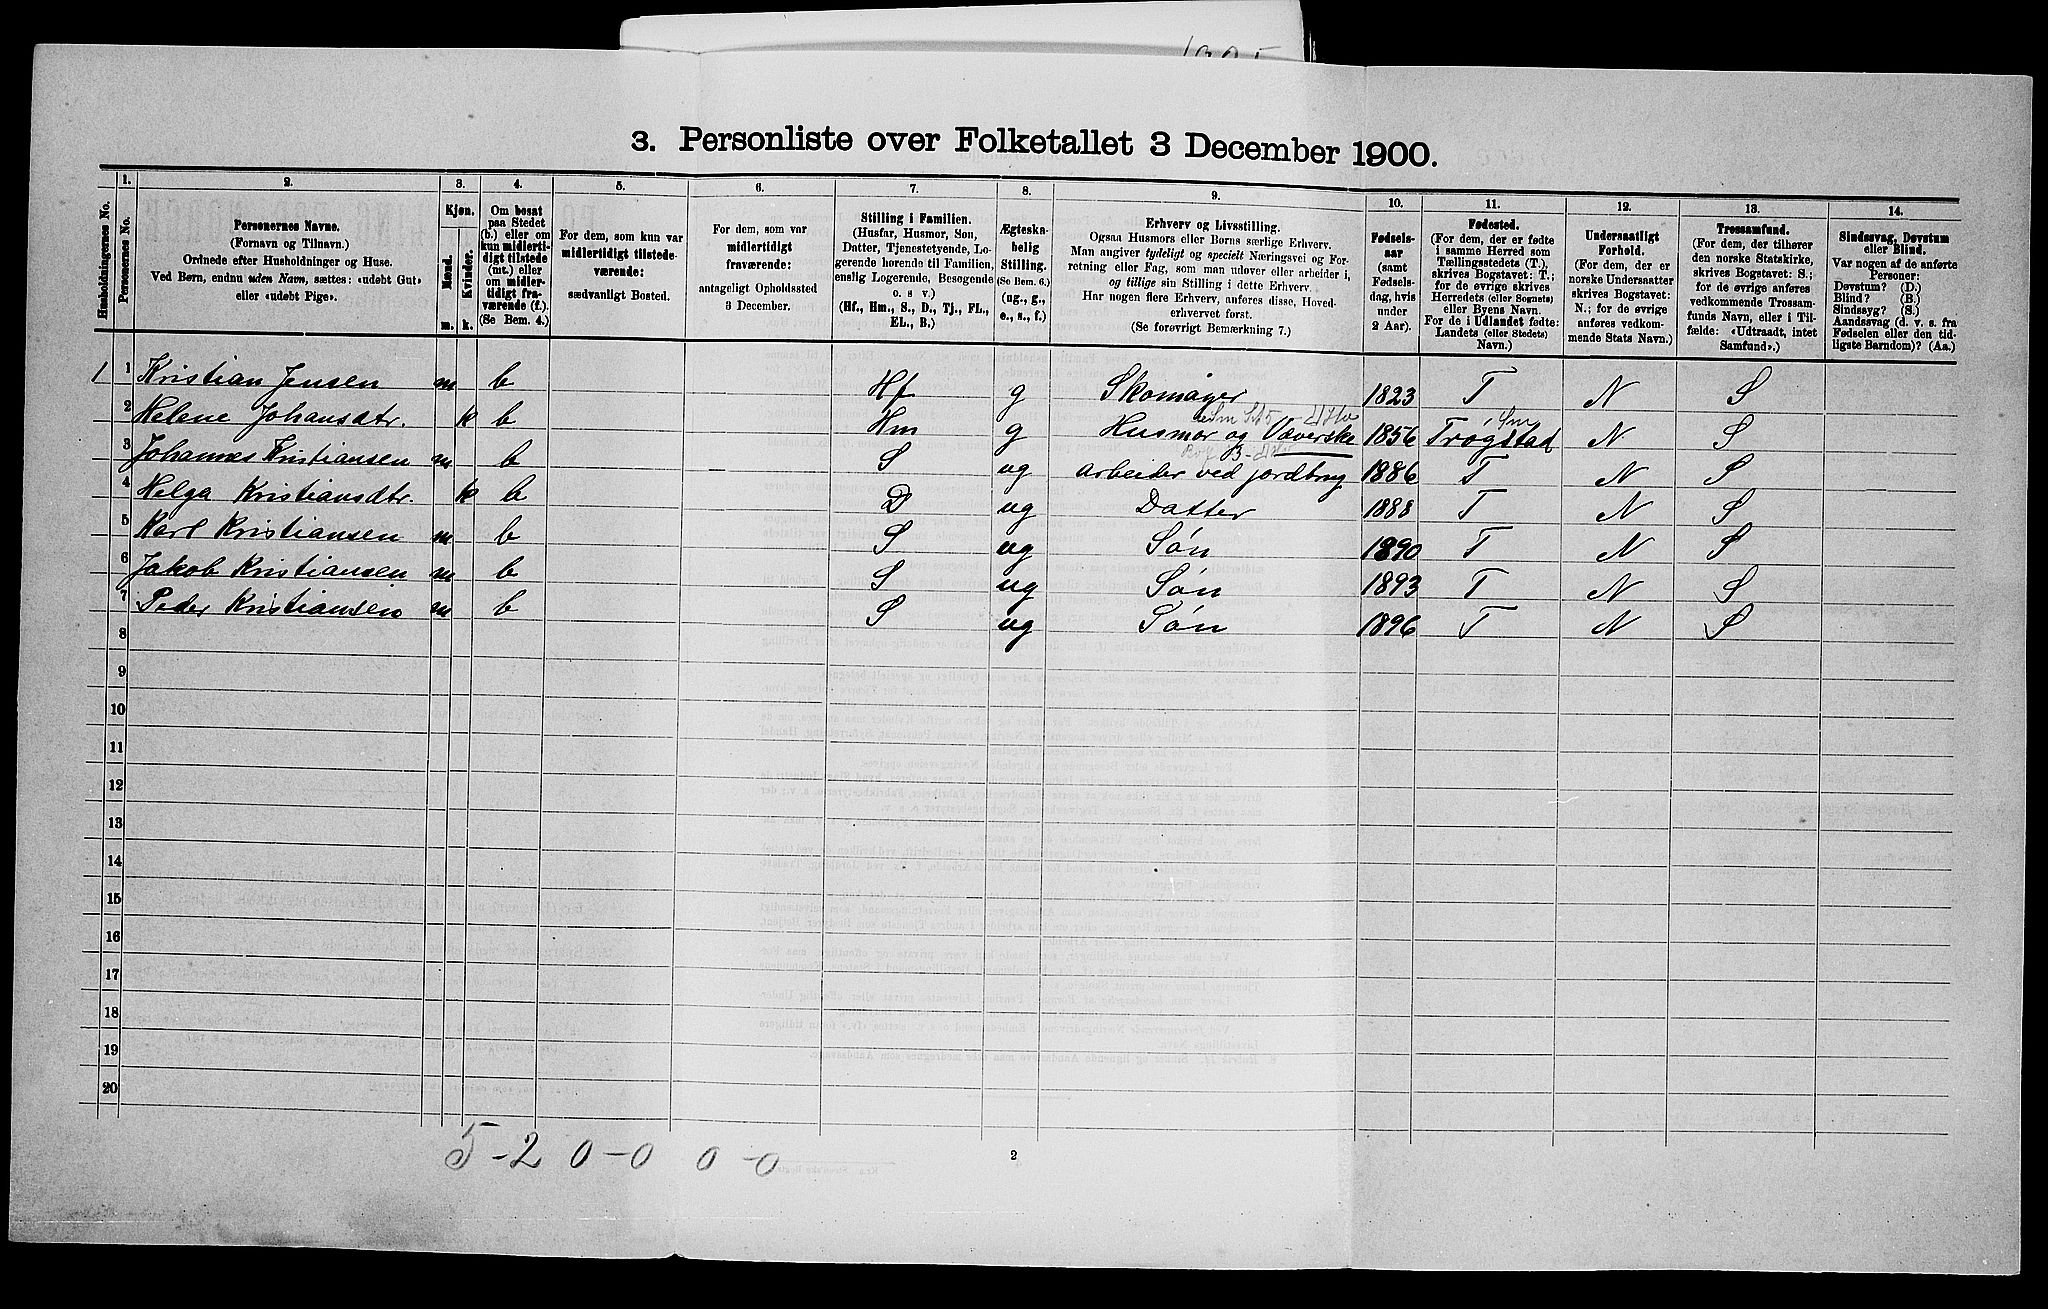 3. Personliste over Folketallet 3 December 1900.
Husholdningernes No.
1.
Personernes No.
2.
Personernes Navne.
(Fornavn og Tilnavn.)
Ordnede efter Husholdninger og Huse.
Ved Børn, endnu uden Navn, sættes: «udøbt Gut»
eller «udøbt Pige».
3.
Kjøn.
Mænd.
Kvinder.
m.
k.
4.
Om bosat
paa Stedet
(b.) eller om
kun midlerti-
digt tilstede
(mt.) eller
om midler-
tidigt fra-
værende (f.).
(Se Bem. 4.)
5.
For dem, som kun var
midlertidigt tilstede-
værende:
sædvanligt Bosted.
6.
For dem, som var
midlertidigt
fraværende:
antageligt Opholdssted
3 December.
7.
Stilling i Familien.
(Husfar, Husmor, Søn,
Datter, Tjenestetyende, Lo-
gerende hørende til Familien,
enslig Logerende, Besøgende
o. s v.)
(Hf., Hm., S., D., Tj., FL.,
EL., B.)
8.
Ægteska-
belig
Stilling.
(Se Bem. 6.)
(ug., g.,
e., s., f.)
9.
Erhverv og Livsstilling.
Ogsaa Husmors eller Børns særlige Erhverv.
Man angiver tydeligt og specielt Næringsvei og For-
retning eller Fag, som man udøver eller arbeider i,
og tillige sin Stilling i dette Erhverv.
Har nogen flere Erhverv, anføres disse, Hoved-
erhvervet først.
(Se forøvrigt Bemærkning 7.)
10.
Fødsels-
aar
(samt
Fødsels-
dag, hvis
under
2 Aar).
11.
Fødested.
(For dem, der er fødte
i samme Herred som
Tællingsstedets (T.),
skrives Bogstavet: T.;
for de øvrige skrives
Herredets (eller Sognets)
eller Byens Navn.
For de i Udlandet fødte:
Landets (eller Stedets)
Navn.)
12.
Undersaatligt
Forhold.
(For dem, der er
norske Undersaatter
skrives Bogstavet:
N.; for de øvrige
anføres vedkom-
mende Stats Navn.)
13.
Trossamfund.
(For dem, der tilhører
den norske Statskirke,
skrives Bogstavet: S.;
for de øvrige anføres
vedkommende Trossam-
funds Navn, eller i Til-
fælde: «Udtraadt, intet
Samfund».)
14.
Sindssvag, Døvstum
eller Blind.
Var nogen af de anførte
Personer:
Døvstum? (D.)
Blind? (B.)
Sindssyg? (S.)
Aandssvag (d. v. s. fra
Fødselen eller den tid-
ligste Barndom)? (Aa.)
1 1 Kristian Jensen m b Hf g Skomager 1823 T N S
2 Helene Johansdtr. k b Hm g Husmor og Væverske 1856 Trøgstad N S
3 Johannes Kristiansen m b S ug arbeider ved jordbrug 1886 T N S
4 Helga Kristiansdtr. k b D ug Datter 1888 T N S
5 Karl Kristiansen m b S ug Søn 1890 T N S
6 Jakob Kristiansen m b S ug Søn 1893 T N S
7 Peder Kristiansen m b S ug Søn 1896 T N S
8
9
10
11
12
13
14
15
16
17
18
19
20
5-2 0-0 0-0
2